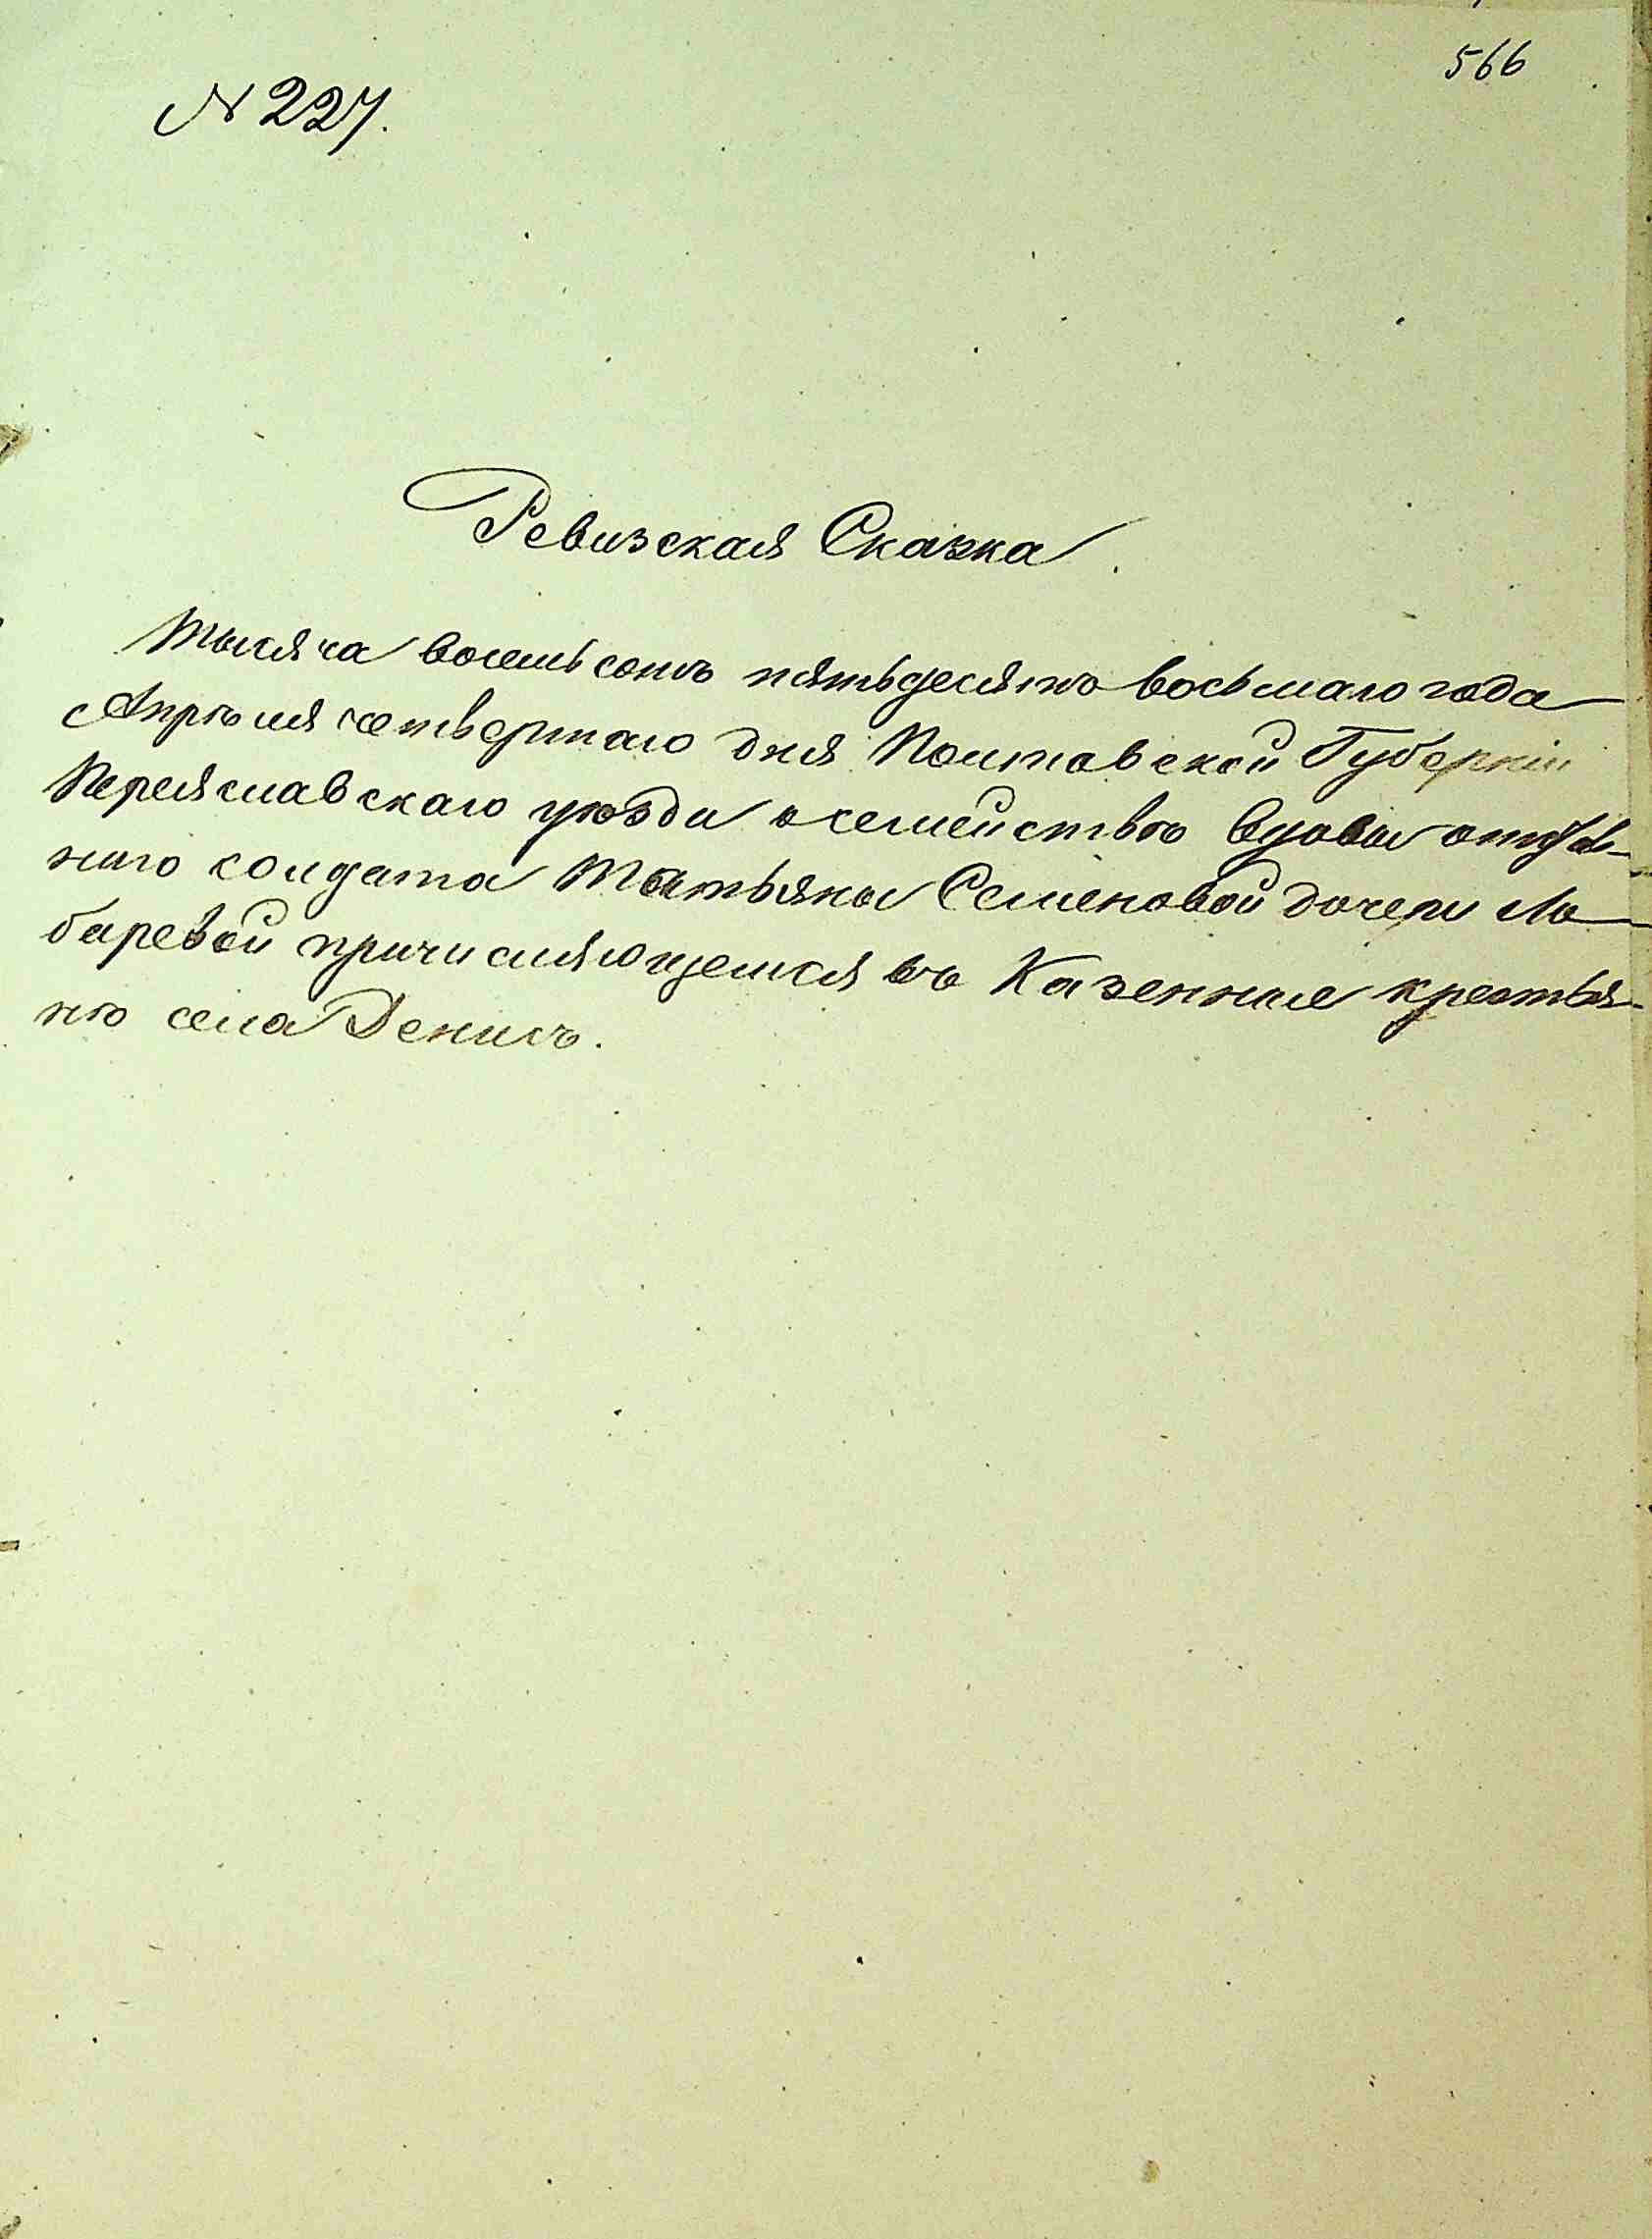 566
№ 227.
Ревизская Сказка.
Тысяча восемьсотъ пятьдесятъ восьмаго года
Апрѣля четвертаго дня Полтавской Губерніи
Переяславскаго уѣзда о семействѣ вдовы отстав-
наго солдата Татьяны Семеновой дочери Ло-
баревой причисляющемся въ Казенные крестья-
нѣ села Денисъ.